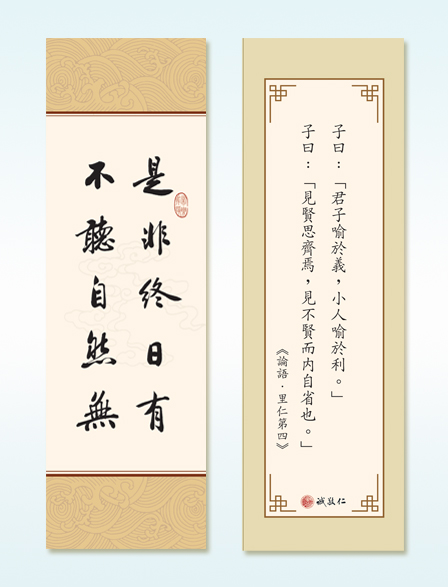 是非終日有
不聽自然無
子曰：「君子喻於義，小人喻於利。」
子曰：「見賢思齊焉，見不賢而內自省也。」
《論語．里仁第四》
誠敬仁